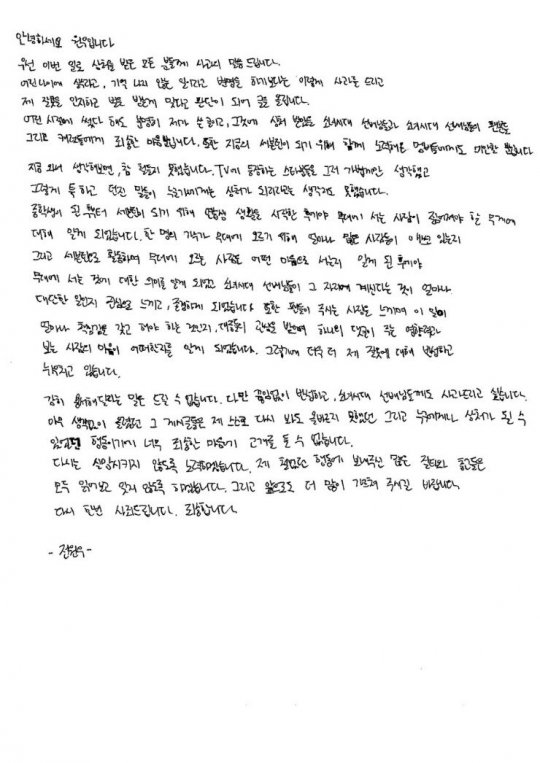 안녕하세요 원우입니다
우선 이번 일로 상처를 받은 모든 분들께 사과의 말씀 드립니다.
어린나이에 썼다고, 기억 나지 않는 일이라고 변명을 하기보다는 이렇게 사과를 드리고
제 잘못을 인지하고 벌로 받는게 맞다고 판단이 되어 글을 올립니다.
어떤 시절에 썼다 해도 분명히 제가 쓴 글이고, 그것에 상처 받았을 소녀시대 선배님들과 소녀시대 선배님들의 팬분들
그리고 캐럿들에게 죄송한 마음뿐입니다. 또한 지금의 세븐틴이 되기 위해 함께 노력해온 멤버들에게도 미안할 뿐입니다
지금 와서 생각해보면, 참 철들지 못했습니다. TV에 등장하는 스타분들을 그저 가볍게만 생각했고
그렇게 툭 하고 던진 말들이 누군가에게는 상처가 되리라고는 생각지도 못했습니다.
중학생이 된 후부터 세븐틴이 되기 위해 연습생 생활을 시작한 후에야 무대에 서는 사람이 짊어져야 할 무게에
대해 알게 되었습니다. 한 명의 가수가 무대에 오르기 위해 얼마나 많은 사람들이 애쓰고 있는지
그리고 세븐틴으로 활동하며 무대에 오르는 사람은 어떤 마음으로 서는지 알게 된 후에야
무대에 서는 것에 대한 의미를 알게 되었고 소녀시대 선배님들이 그 자리에 계신다는 것이 얼마나
대단한 일인지 진심으로 느끼고, 존경하게 되었습니다 또한 팬들이 주시는 사랑을 느끼며 이 일이
얼마나 책임감을 갖고 해야 하는 것인지, 대중들의 관심을 받으며 하나의 댓글이 주는 영향력과
보는 사람의 마음이 어떠한지를 알게 되었습니다. 그렇기에 더욱 더 제 잘못에 대해 반성하고
뉘우치고 있습니다.
감히 용서해달라는 말은 드릴 수 없습니다. 다만 끊임없이 반성하고, 소녀시대 선배님들께도 사과드리고 싶습니다.
아무 생각없이 올렸었던 그 게시글들은 제 스스로 다시 봐도 올바르지 못했던 그리고 누군에게나 상처가 될 수
있었던 행동이기에 너무 죄송한 마음에 고개를 들 수 없습니다.
다시는 실망시키지 않도록 노력하겠습니다. 제 철없던 행동에 보내주신 많은 질타와 충고들은
모두 읽어보고 잊지 않도록 하겠습니다. 그리고 앞으로도 더 많이 가르쳐 주시길 바랍니다.
다시 한번 사죄드립니다. 죄송합니다.
- 전원우 -